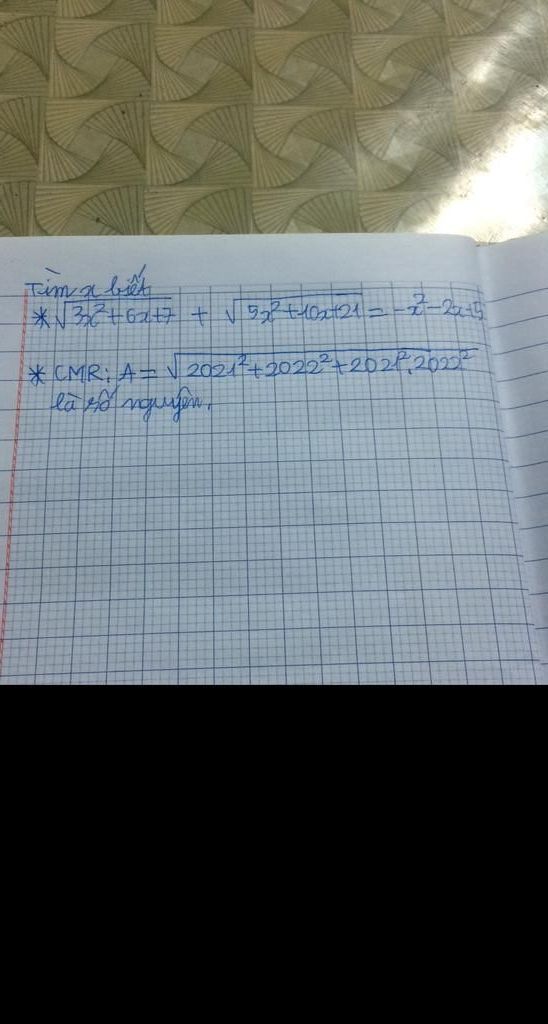 Tìm x biết
* √3x²+6x+7 + √5x²+10x+21 = -x²-2x+5
* CMR: A = √2021²+2022²+2021².2022²
là số nguyên.